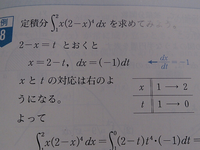 例 8 定積分 ∫₁² x(2−x)⁴ dx を求めてみよう。
2−x = t とおくと
x = 2−t, dx = (−1)dt ← dx/dt = −1
x と t の対応は右のよ
うになる。
x | 1 → 2
t | 1 → 0
よって
∫₁² x(2−x)⁴ dx = ∫₁⁰ (2−t)t⁴·(−1)